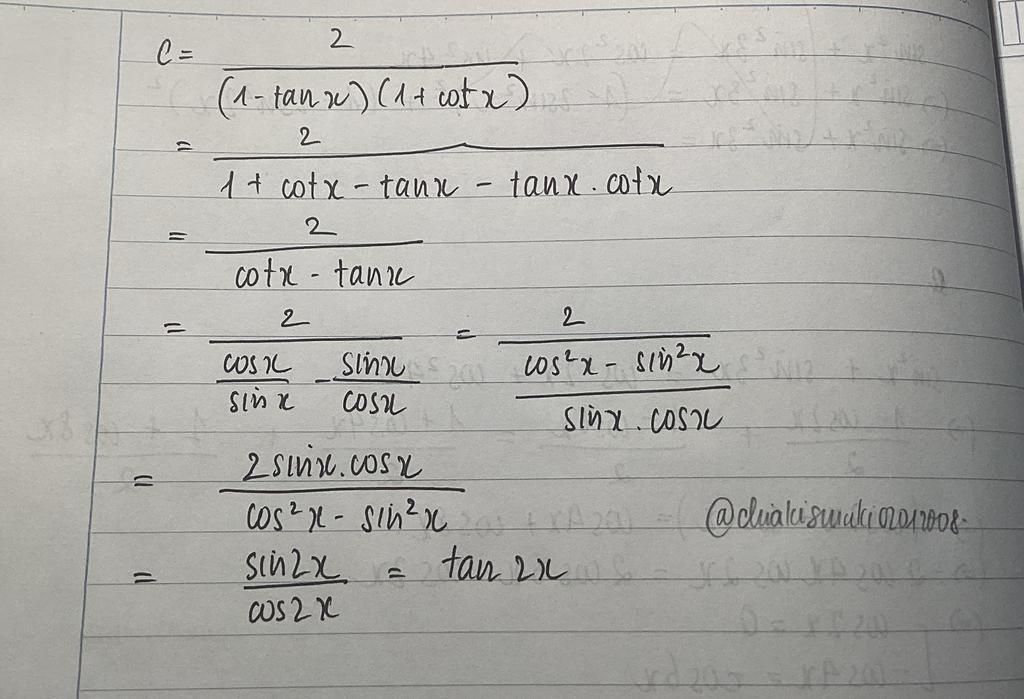 C = 2 / (1 - tanx)(1 + cotx)
= 2 / 1 + cotx - tanx - tanx . cotx
= 2 / cotx - tanx
= 2 / cosx/sinx - sinx/cosx = 2 / cos²x - sin²x / sinx . cosx
= 2sinx.cosx / cos²x - sin²x
= sin2x / cos2x = tan 2x